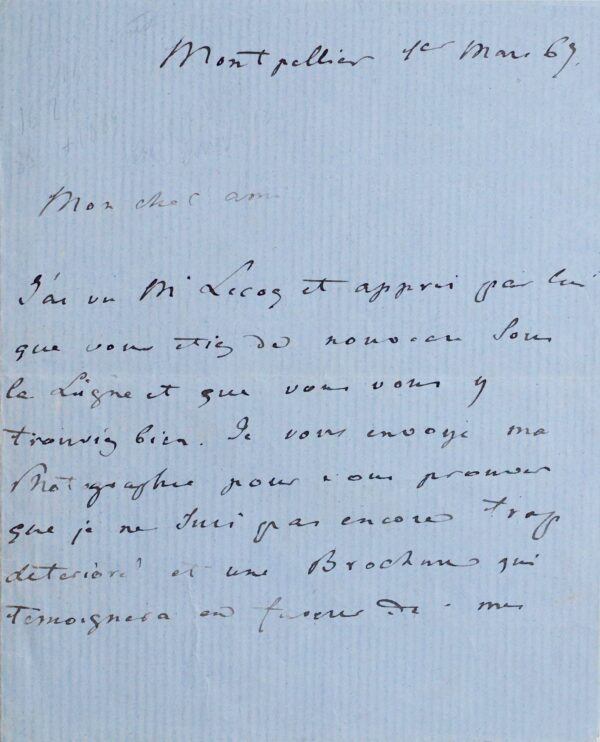 Montpellier 1er Mars 69.
Mon cher ami
J'ai vu Mr Lecoq et appris par lui
que vous étiez de nouveau sous
la Ligne et que vous vous y
trouviez bien. Je vous envoye ma
Photographie pour vous prouver
que je ne suis pas encore trop
déterioré et une Brochure qui
temoignera en faveur de mes